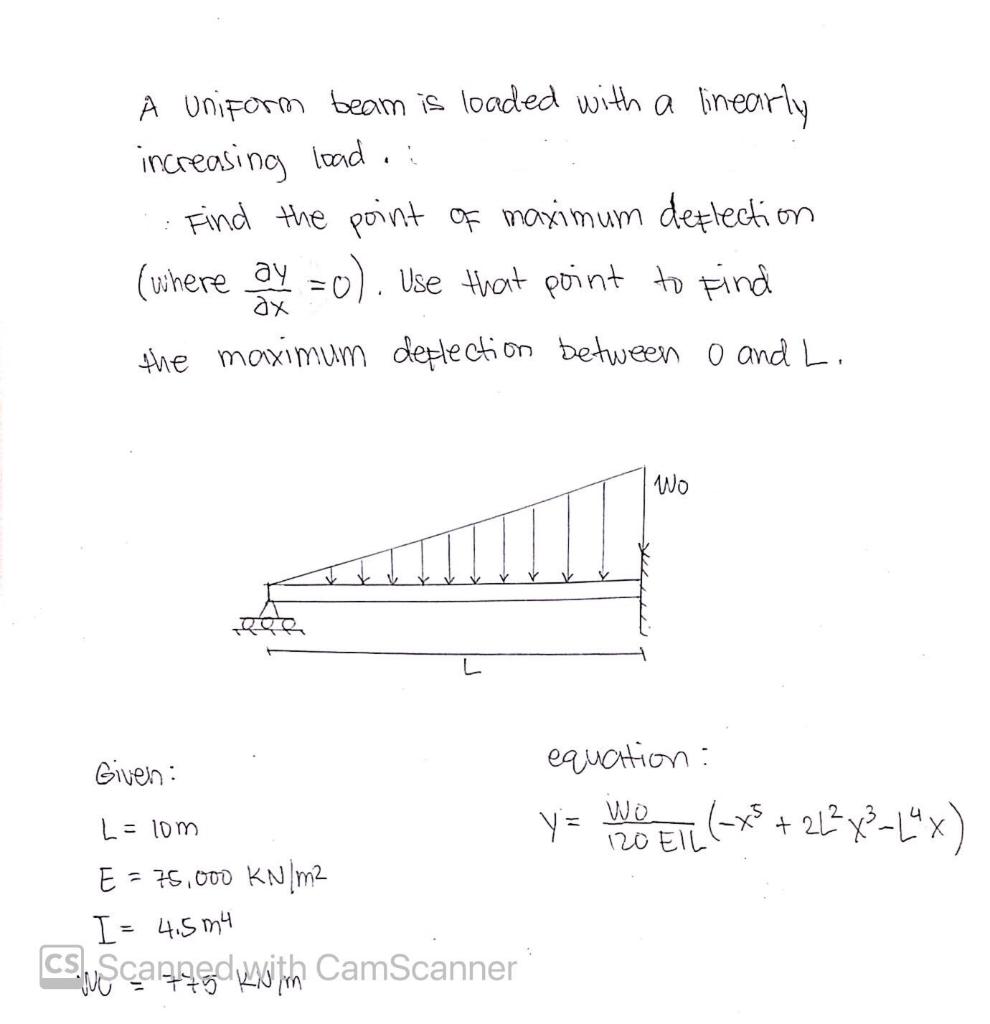 A uniform beam is loaded with a linearly
increasing load.
Find the point of maximum deflection
(where ∂y/∂x = 0). Use that point to find
the maximum deflection between 0 and L.
Wo
L
Given:
equation:
L = 10m
y = Wo/120 EIL (-x⁵ + 2L²x³ - L⁴x)
E = 75,000 KN/m2
I = 4.5 m4
CS Scanned with CamScanner
Wo = 775 KN/m